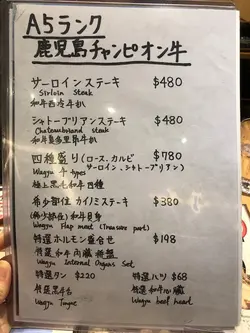 A5ランク
鹿児島チャンピオン牛
サーロインステーキ $480
Sirloin steak
和牛西冷牛扒
シャトーブリアンステーキ $480
Chateaubriand steak
和牛莫里哀牛扒
四種盛り(ロース、カルビ $780
サーロイン、シャトーブリアン)
Wagyu 4 types
極上黒毛和牛四種
希少部位 カイノミステーキ $380
(稀少部位) 和牛貝身
Wagyu Flap meet (Treasure part)
特選ホルモン盛合せ $198
特選和牛内臓精盛
Wagyu Internal Organs Set
特選タン $220 特選ハツ $68
特選黒牛舌 特選和牛心臓
Wagyu Tongue Wagyu beef heart